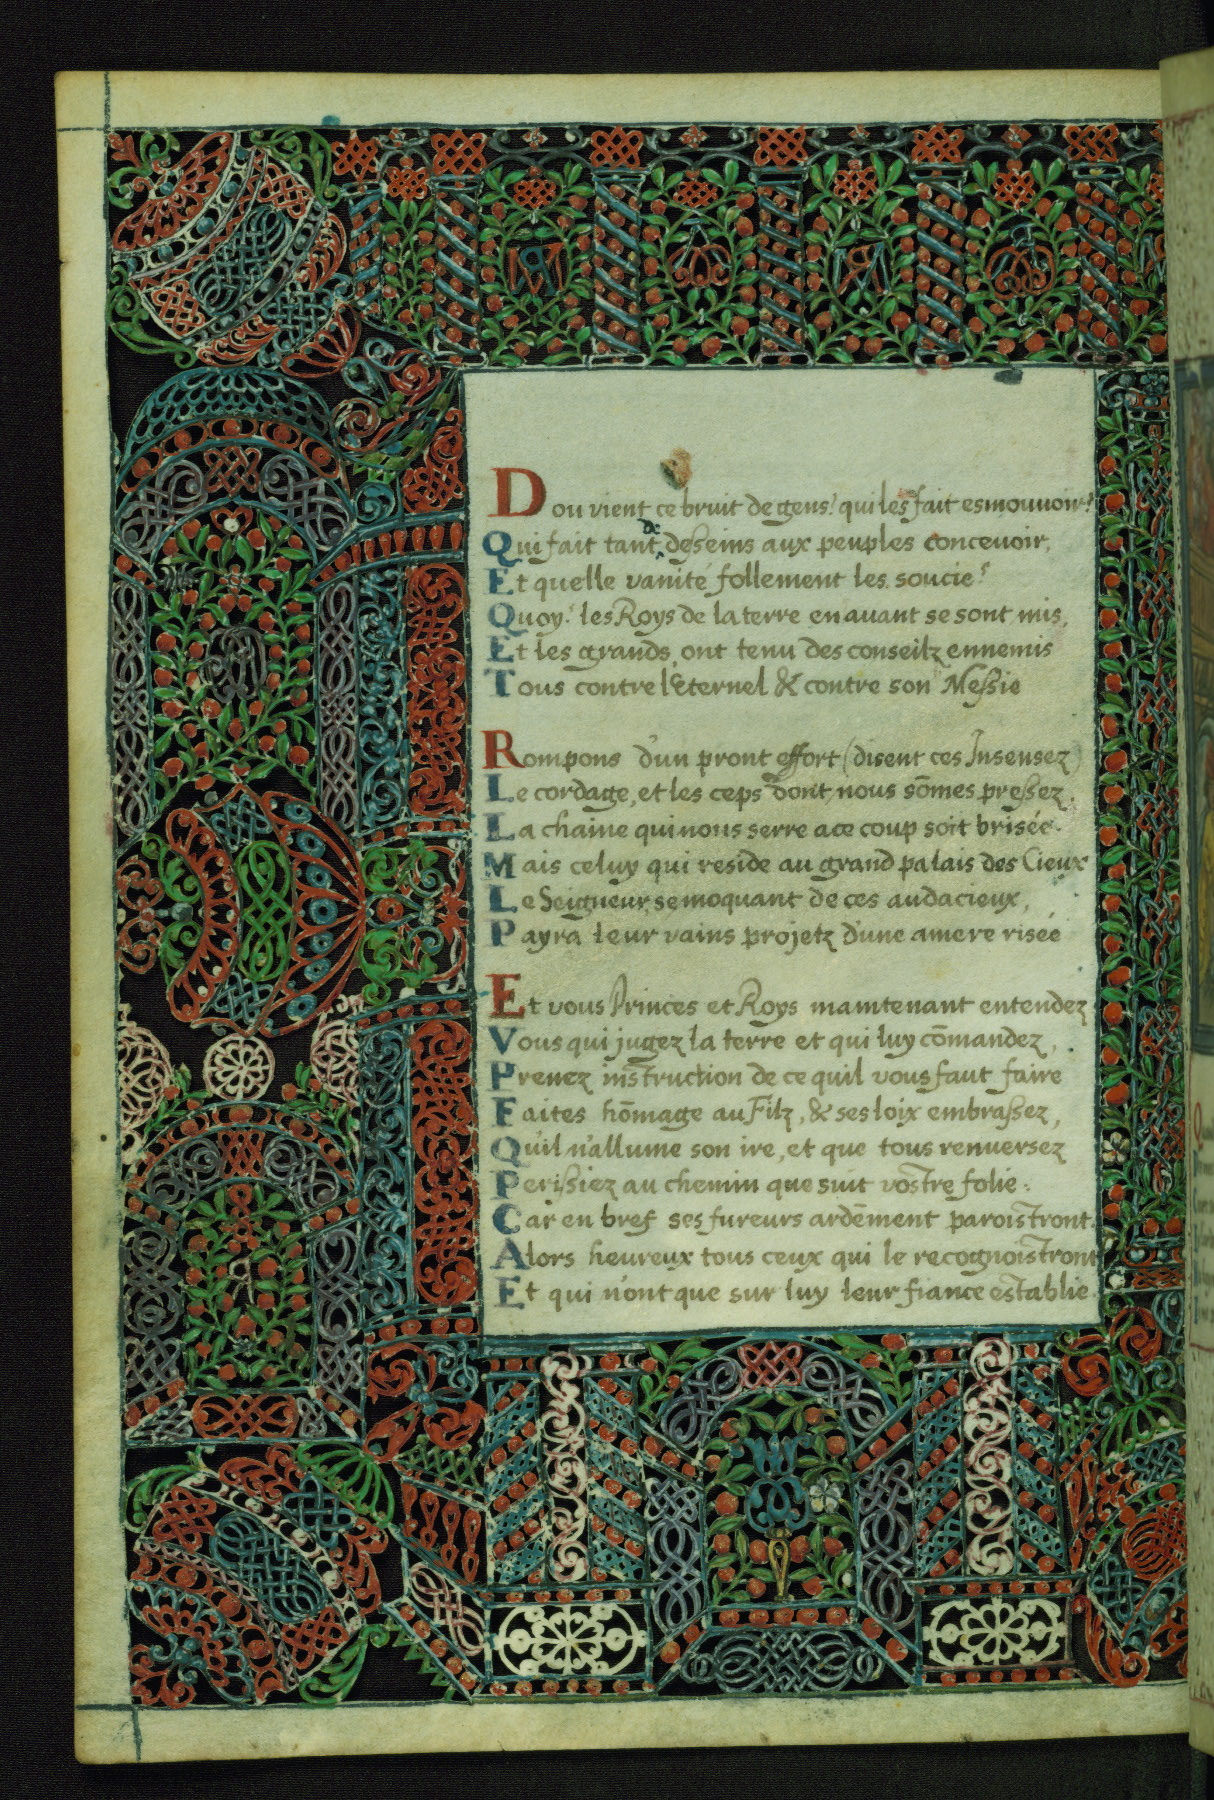 Dou vient ce bruit de gens? qui les fait esmouuoir?
Qui fait tant de deseins aux peuples conceuoir,
Et quelle vanité follement les soucie?
Quoy? les Roys de la terre en auant se sont mis,
Et les grands, ont tenu des conseilz ennemis
Tous contre l'Eternel & contre son Messie
Rompons d'un pront effort (disent ces Insensez)
Le cordage, et les ceps dont nous sõmes pressez
La chaine qui nous serre a ce coup soit brisée.
Mais celuy qui reside au grand palais des Cieux
Le Seigneur, se moquant de ces audacieux,
Payra leur vains projetz d'une amere risée
Et vous Princes et Roys maintenant entendez
Vous qui jugez la terre et qui luy cõmandez,
Prenez instruction de ce quil vous faut faire
Faites hõmage au Filz, & ses loix embrassez,
Qu'il n'allume son ire, et que tous renuersez
Perissiez au chemin que suit vostre folie:
Car en bref ses fureurs ardẽment paroistront.
Alors heureux tous ceux qui le recognoistront
Et qui n'ont que sur luy leur fiance establie.